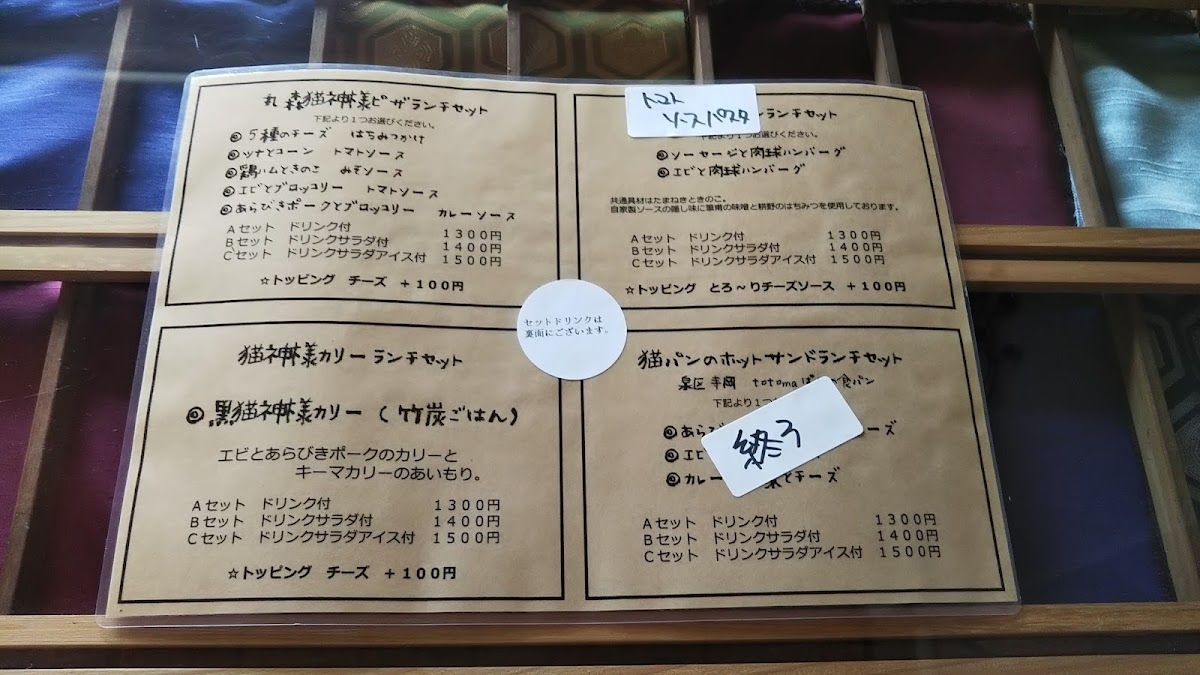 丸森猫神様ピザランチセット
下記より1つお選びください。
◎5種のチーズ はちみつかけ
◎ツナとコーン トマトソース
◎鶏ハムときのこ みそソース
◎エビとブロッコリー トマトソース
◎あらびきポークとブロッコリー カレーソース
Aセット ドリンク付 1300円
Bセット ドリンクサラダ付 1400円
Cセット ドリンクサラダアイス付 1500円
☆トッピング チーズ +100円
トマト
ソースパスタ
ランチセット
より1つお選びください。
◎ソーセージと肉球ハンバーグ
◎エビと肉球ハンバーグ
共通具材はたまねぎときのこ。
自家製ソースの隠し味に筆甫の味噌と耕野のはちみつを使用しております。
Aセット ドリンク付 1300円
Bセット ドリンクサラダ付 1400円
Cセット ドリンクサラダアイス付 1500円
☆トッピング とろ~りチーズソース +100円
セットドリンクは
裏面にございます。
猫神様カリーランチセット
◎黒猫神様カリー(竹炭ごはん)
エビとあらびきポークのカリーと
キーマカリーのあいもり。
Aセット ドリンク付 1300円
Bセット ドリンクサラダ付 1400円
Cセット ドリンクサラダアイス付 1500円
☆トッピング チーズ +100円
猫パンのホットサンドランチセット
泉区寺岡 totoma 食パン
下記より1つ
◎あら ーズ
◎エビ
◎カレー とチーズ
終了
Aセット ドリンク付 1300円
Bセット ドリンクサラダ付 1400円
Cセット ドリンクサラダアイス付 1500円